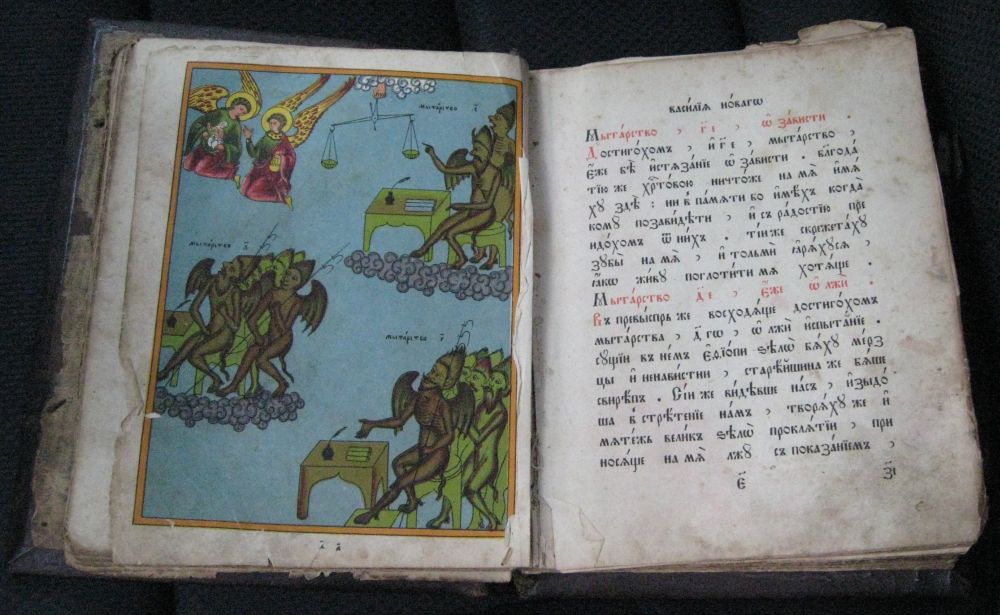 мыта́рство
мыта́рство
мыта́рство
васи́лїѧ но́вагѡ
Мыта́рство , г҃е , ѡ҆ за́висти .
Достиго́хомъ , и҆ г҃е , мыта́рство ,
є҆́же бѣ̀ и҆стѧза́нїе ѡ҆ за́висти . блгода́
тїю же хрⷭ҇то́вою ничто́же на мѧ̀ и҆мѧ́
хꙋ здѣ̀ : ни в̾ па́мѧти бо и҆мѣ́хъ когда̀
комꙋ̀ позави́дѣти , и҆ съ ра́достїю пре
идо́хомъ ѿ ни́хъ . ті́и же скрежета́хꙋ
зꙋбы̀ на мѧ̀ , и҆ то́льми ꙗ҆рѧ́хꙋсѧ ,
ꙗ҆́кѡ жи́вꙋ поглоти́ти мѧ̀ хотѧ́ще .
Мыта́рство д҃е , є҆́же ѡ҆ лжѝ .
Въ превы́спрь же восходѧ́ще достиго́хомъ
мыта́рства , д҃гѡ , ѡ҆ лжѝ и҆спыта́нїе .
сꙋ́щїи въ не́мъ є҆ѳїо́пи ѕѣлѡ̀ бѧ́хꙋ ме́рз
цы и҆ ненави́стни , старѣ́йшина же бѧ́ше
свирѣ́пъ . Сі́и же ви́дѣвше на́съ , и҆зыдо́
ша в̾ стрѣ́тенїе на́мъ , творѧ́хꙋ же и҆
мѧте́жь вели́къ ѕѣлѡ̀ проклѧ́тїи , при
носѧ́ще на мѧ̀ лжꙋ̀ съ показа́нїемъ ,
є҃
з҃і